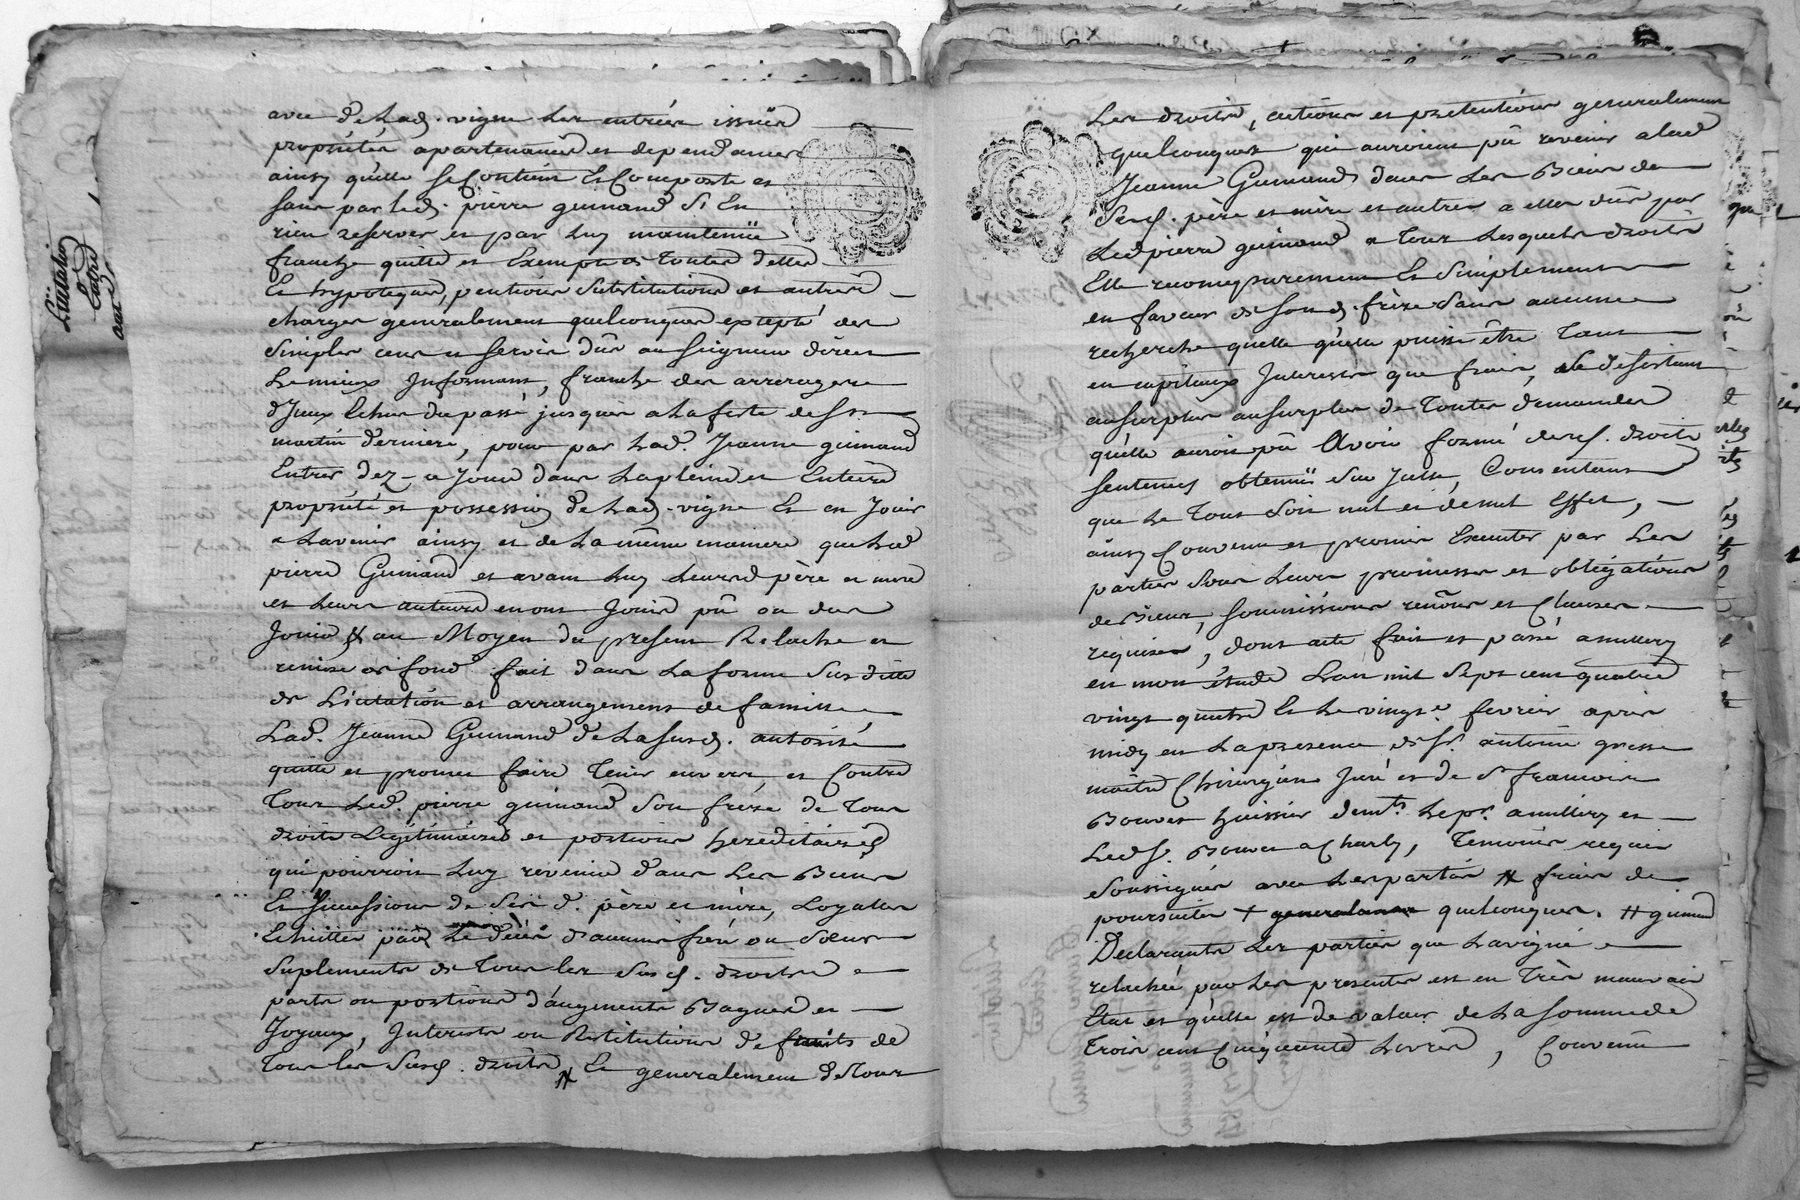 Licitation
Entre
avec de Lad. vigne Les entrées issües
propriétés apartenances et dependances
ainsy qu'elle se Contient Et Comporte et
sans par Led. pierre guinand S'i En
rien reserver et par Luy maintenüe
franche quitte et Exempte de toutes dettes
Et hypoteques, pentions substitutions et autres
charges generalement quelconques exepté des
Simples cens et servis dûs au seigneur direct
Le mieux Informant, franche des arrerages
d'Iceux Echus du passé jusques a La feste de St
martin derniere, pour par Lad. Jeanne guinand
Entrer dez-a Jour dans La pleine et Entiere
propriété et possession de Lad. vigne Et en Jouir
a Lavenir ainsy et de La même maniere que Led
pierre Guinand et avant Luy Leursd père et mere
et Leurs auteurs en ont Jouis pû ou dus
Jouir # au Moyen du present Relache et
remise de fond fait dans La forme Sus ditte
de Licitation et arrangement de famille
Lad. Jeanne Guinand de La susd. autorité
quitte et promet faire Tenir envers et Contre
Tous Led. pierre guinand Son frére de Tous
droits Legitimaires et portions hereditaires
qui pourroit Luy revenir dans Les Biens
Et successions de Sesd. père et mère, Loyalles
Echuittes par Le décés d'aucuns frere ou Sœurs
Suplements de Tous les Susd. droits
parts ou portions d'augments Bagues et
Joyaux, Interests ou Restitutions de fruits de
Tous les Susd. droits # Et generalement de Tous
Les droits, actions et pretentions generalement
quelconques qui auroient pû revenir a Lad
Jeanne Guinand dans Les Biens de
Sesd. père et mère et autres a elle dûs par
Led pierre guinand a Tous Lesquels droits
Elle renonce purement Et Simplement
en faveur de Sond. frère Sans aucune
recherche quelle qu'elle puisse être Tant
en capitaux Interests que frais, Se desistant
au surplus de Toutes demandes
qu'elle auroit pû Avoir formé desd. droits
sentences obtenües Sur Icelle, Consentant
que Le Tout Soit nul et de nul Effet,
ainsy Convenu et promis Executer par Les
parties Sous Leurs promesses et obligations
de Biens, soumissions renons et Clauses
requises, dont acte fait et passé a millery
en mon étude Lan mil Sept cent quatre
vingt quatre Et Le vingt. fevrier apres
midy en La presence de Sr. antoine
maître Chirurgien Juré et de Sr francois
Bouvet huissier demts. Le pr. a millery et
Led Sr. Bouvet a Charly, Temoins requis
Soussignés avec Les parties # frais de
poursuites + generalement quelconques. # guinand
Declarants Les parties que La vigne
relachée par Les presentes est en Très mauvais
Etat et qu'elle est de valeur de La somme de
Trois cent Cinquante Livres, Convenu